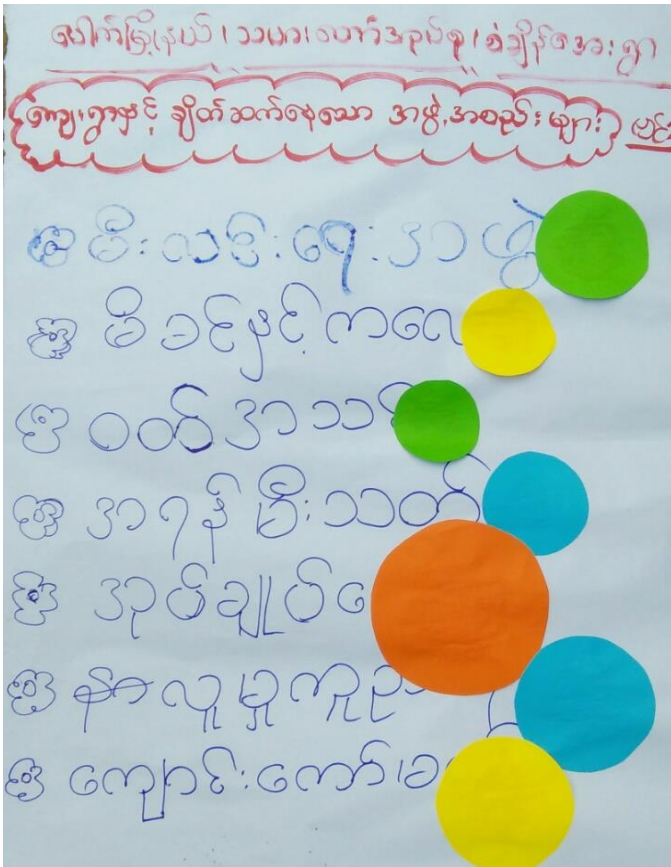 ပေါက်မြို့နယ်၊ သမားတောင်အုပ်စု၊ စံချိန်အေးရွာ
ကျေးရွာနှင့် ချိတ်ဆက်နေသော အဖွဲ့အစည်းများ
မီးလင်းရေးအဖွဲ့
မိခင်နှင့်ကလေး
ဝတ်အသင်
အရန်မီးသတ်
အုပ်ချုပ်ရေ
နာလူမှုကူည
ကျောင်းကော်၊